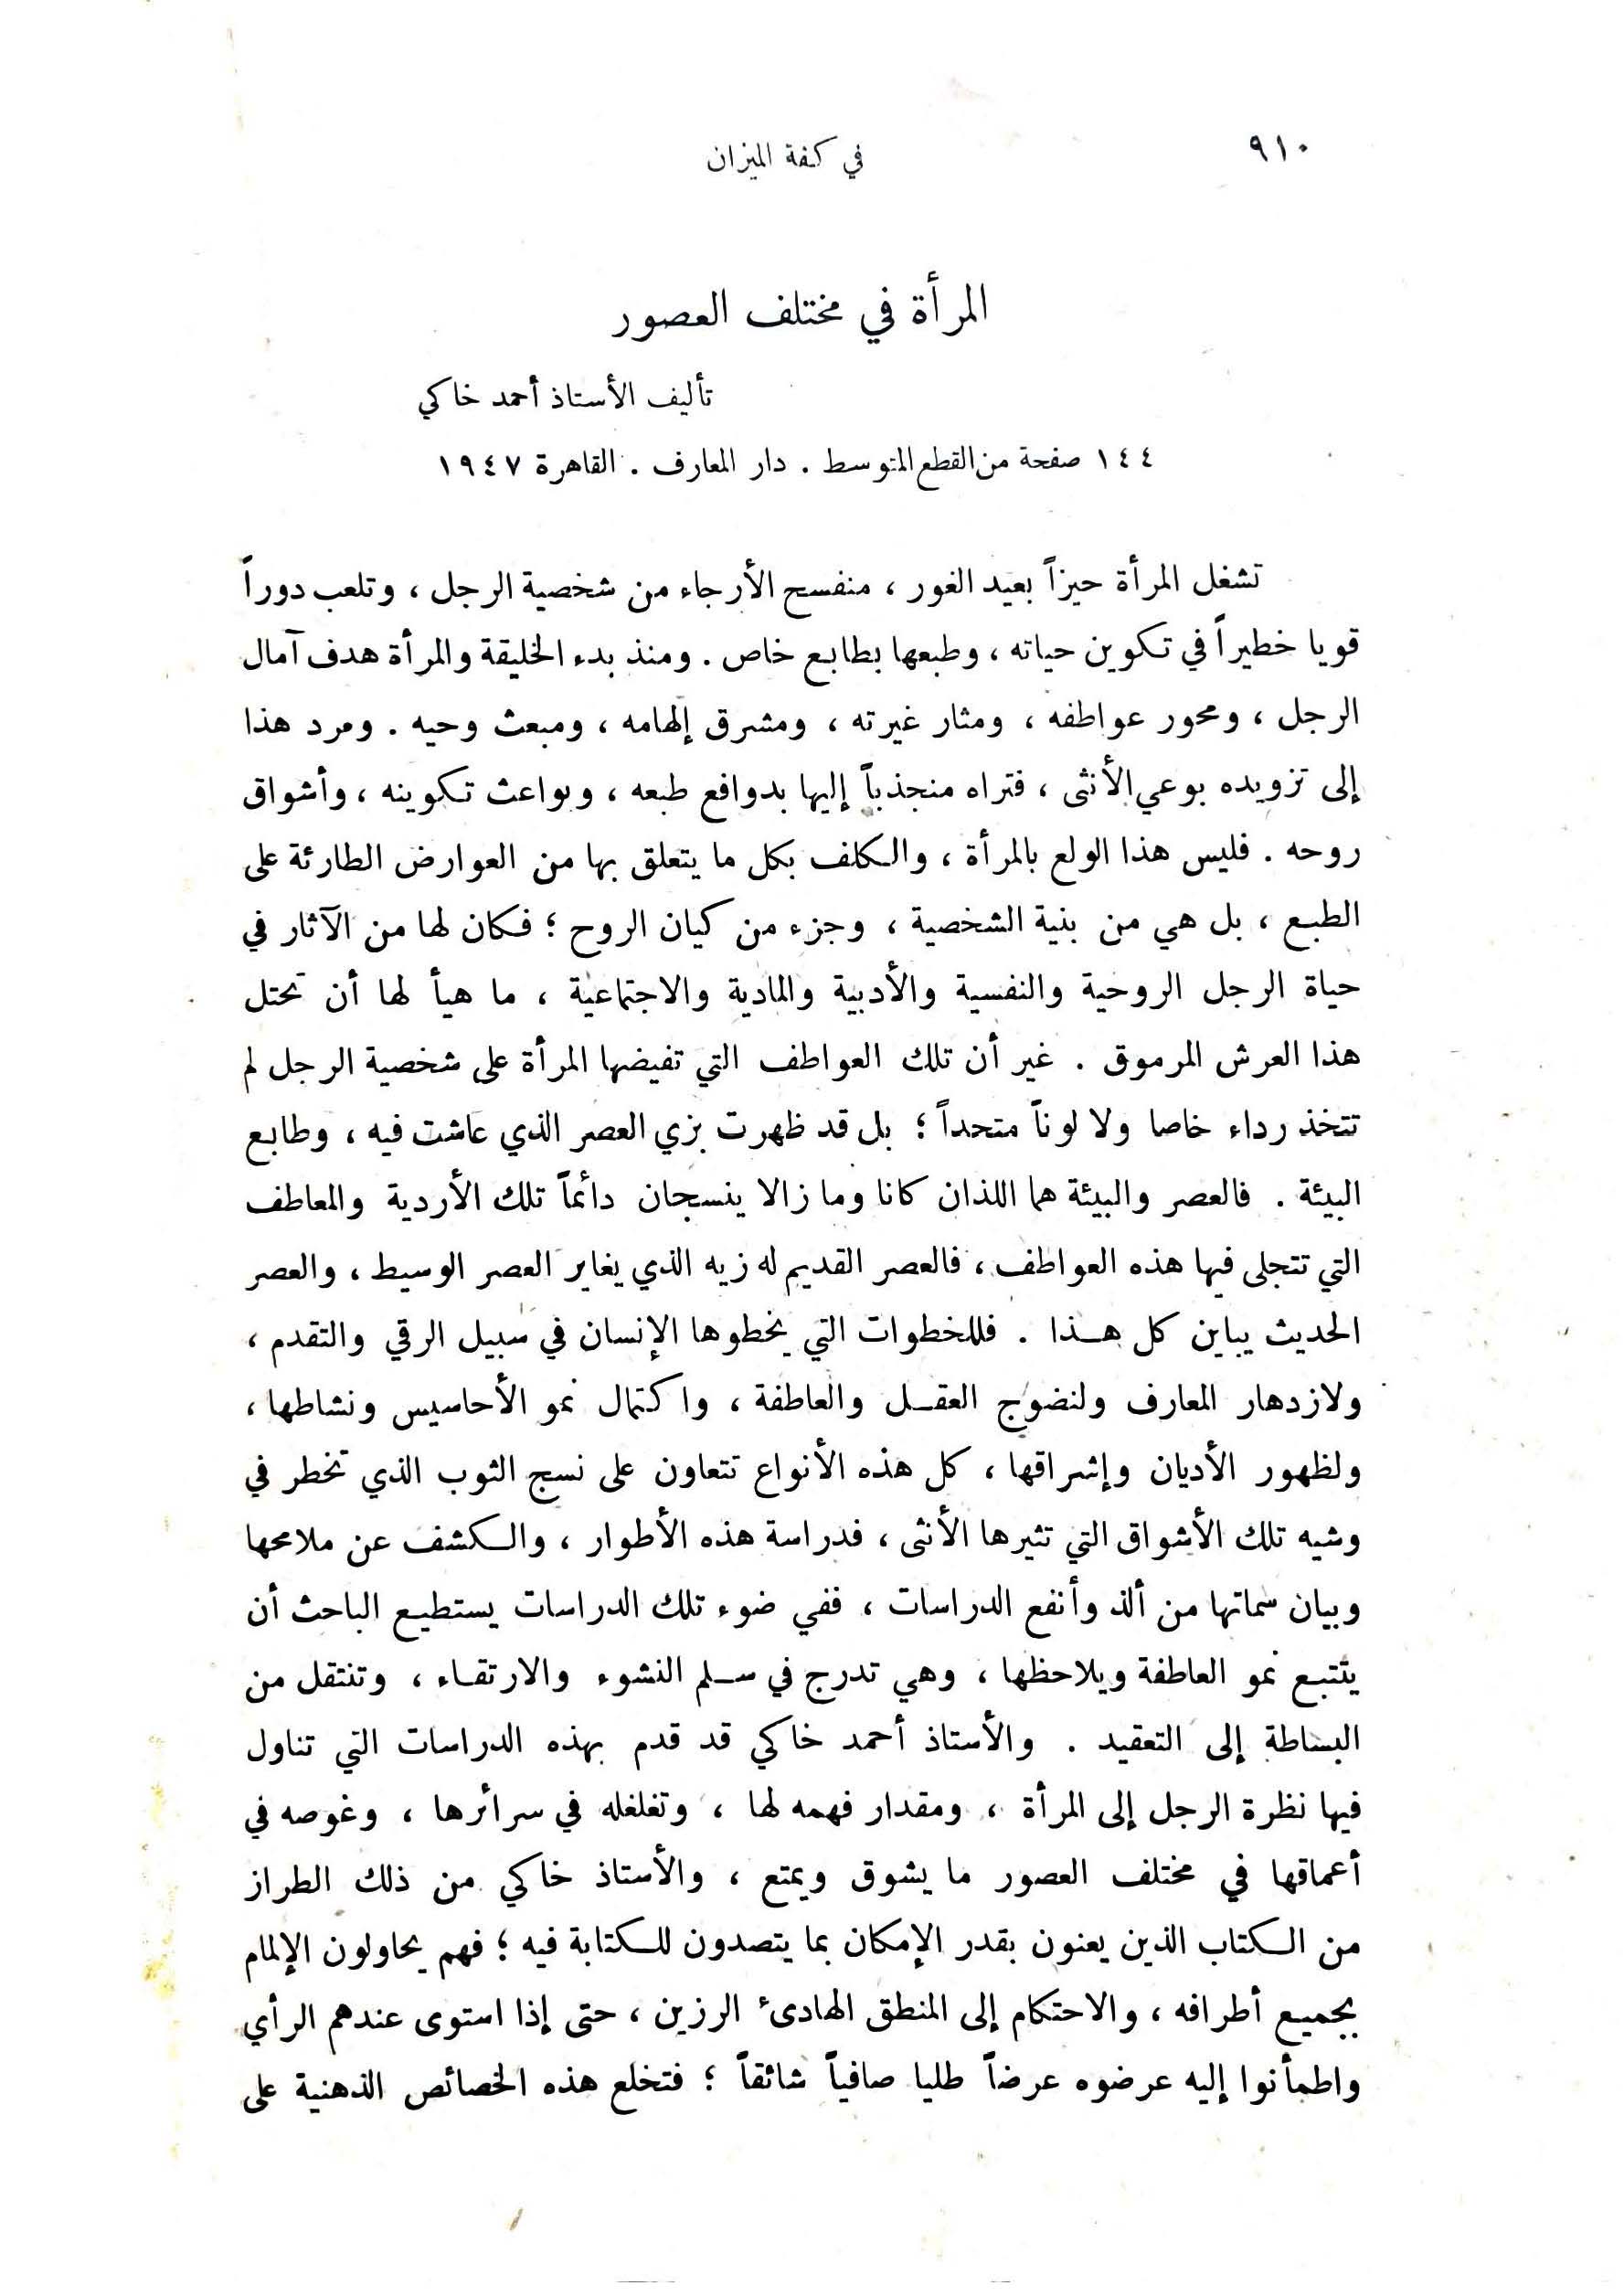 ٩١٠
في كفة الميزان
المرأة في مختلف العصور
تأليف الأستاذ أحمد خاكي
١٤٤ صفحة من القطع المتوسط . دار المعارف . القاهرة ١٩٤٧
تشغل المرأة حيزاً بعيد الغور ، منفسح الأرجاء من شخصية الرجل ، وتلعب دوراً
قويا خطيراً في تكوين حياته ، وطبعها بطابع خاص . ومنذ بدء الخليقة والمرأة هدف آمال
الرجل ، ومحور عواطفه ، ومثار غيرته ، ومشرق إلهامه ، ومبعث وحيه . ومرد هذا
إلى تزويده بوعي الأنثى ، فتراه منجذباً إليها بدوافع طبعه ، وبواعث تكوينه ، وأشواق
روحه . فليس هذا الولع بالمرأة ، والكلف بكل ما يتعلق بها من العوارض الطارئة على
الطبع ، بل هي من بنية الشخصية ، وجزء من كيان الروح ؛ فكان لها من الآثار في
حياة الرجل الروحية والنفسية والأدبية والمادية والاجتماعية ، ما هيأ لها أن تحتل
هذا العرش المرموق . غير أن تلك العواطف التي تفيضها المرأة على شخصية الرجل لم
تتخذ رداء خاصا ولا لوناً متحداً ؛ بل قد ظهرت بزي العصر الذي عاشت فيه ، وطابع
البيئة . فالعصر والبيئة هما اللذان كانا وما زالا ينسجان دائماً تلك الأردية والمعاطف
التي تتجلى فيها هذه العواطف ، فالعصر القديم له زيه الذي يغاير العصر الوسيط ، والعصر
الحديث يباين كل هذا . فللخطوات التي يخطوها الإنسان في سبيل الرقي والتقدم ،
ولازدهار المعارف ولنضوج العقل والعاطفة ، واكتمال نمو الأحاسيس ونشاطها ،
ولظهور الأديان وإشراقها ، كل هذه الأنواع تتعاون على نسج الثوب الذي تخطر في
وشيه تلك الأشواق التي تثيرها الأنثى ، فدراسة هذه الأطوار ، والكشف عن ملامحها
وبيان سماتها من ألذ وأنفع الدراسات ، ففي ضوء تلك الدراسات يستطيع الباحث أن
يتتبع نمو العاطفة ويلاحظها ، وهي تدرج في سلم النشوء والارتقاء ، وتنتقل من
البساطة إلى التعقيد . والأستاذ أحمد خاكي قد قدم بهذه الدراسات التي تناول
فيها نظرة الرجل إلى المرأة ، ومقدار فهمه لها ، وتغلغله في سرائرها ، وغوصه في
أعماقها في مختلف العصور ما يشوق ويمتع ، والأستاذ خاكي من ذلك الطراز
من الكتاب الذين يعنون بقدر الإمكان بما يتصدون للكتابة فيه ؛ فهم يحاولون الإلمام
بجميع أطرافه ، والاحتكام إلى المنطق الهادىء الرزين ، حتى إذا استوى عندهم الرأي
واطمأنوا إليه عرضوه عرضاً طليا صافياً شائقاً ؛ فتخلع هذه الخصائص الذهنية على